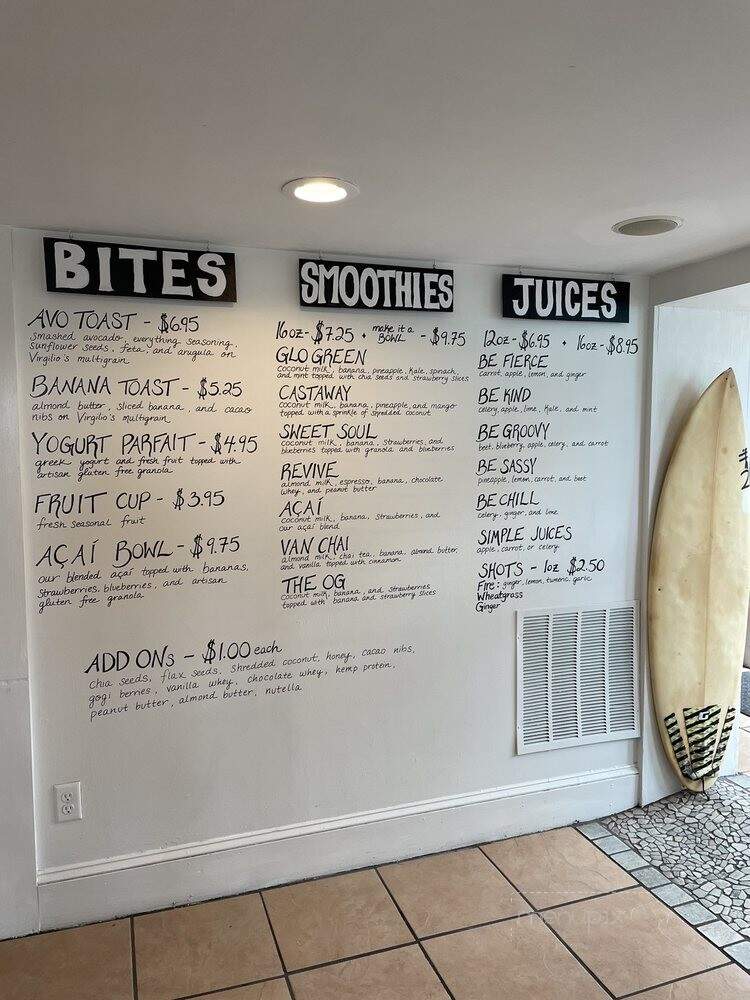 BITES
AVO TOAST - $6.95
smashed avocado, everything seasoning,
sunflower seeds, feta, and arugula on
Virgilio's multigrain
BANANA TOAST - $5.25
almond butter, sliced banana, and cacao
nibs on Virgilio's multigrain
YOGURT PARFAIT - $4.95
greek yogurt and fresh fruit topped with
artisan gluten free granola
FRUIT CUP - $3.95
fresh seasonal fruit
AÇAÍ BOWL - $9.75
our blended açaí topped with bananas,
strawberries, blueberries, and artisan
gluten free granola
ADD ONs - $1.00 each
chia seeds, flax seeds, shredded coconut, honey, cacao nibs,
gogi berries, vanilla whey, chocolate whey, hemp protein,
peanut butter, almond butter, nutella
SMOOTHIES
16oz - $7.25 • make it a BOWL - $9.75
GLO GREEN
coconut milk, banana, pineapple, kale, spinach,
and mint topped with chia seeds and strawberry slices
CASTAWAY
coconut milk, banana, pineapple, and mango
topped with a sprinkle of shredded coconut
SWEET SOUL
coconut milk, banana, strawberries, and
blueberries topped with granola and blueberries
REVIVE
almond milk, espresso, banana, chocolate
whey, and peanut butter
AÇAÍ
coconut milk, banana, strawberries, and
our açaí blend
VAN CHAI
almond milk, chai tea, banana, almond butter,
and vanilla topped with cinnamon
THE OG
coconut milk, banana, and strawberries
topped with banana and strawberry slices
JUICES
12oz - $6.95 • 16oz - $8.95
BE FIERCE
carrot, apple, lemon, and ginger
BE KIND
celery, apple, lime, kale, and mint
BE GROOVY
beet, blueberry, apple, celery, and carrot
BE SASSY
pineapple, lemon, carrot, and beet
BE CHILL
celery, ginger, and lime
SIMPLE JUICES
apple, carrot, or celery
SHOTS - 1oz $2.50
Fire: ginger, lemon, tumeric, garlic
Wheatgrass
Ginger
menupix